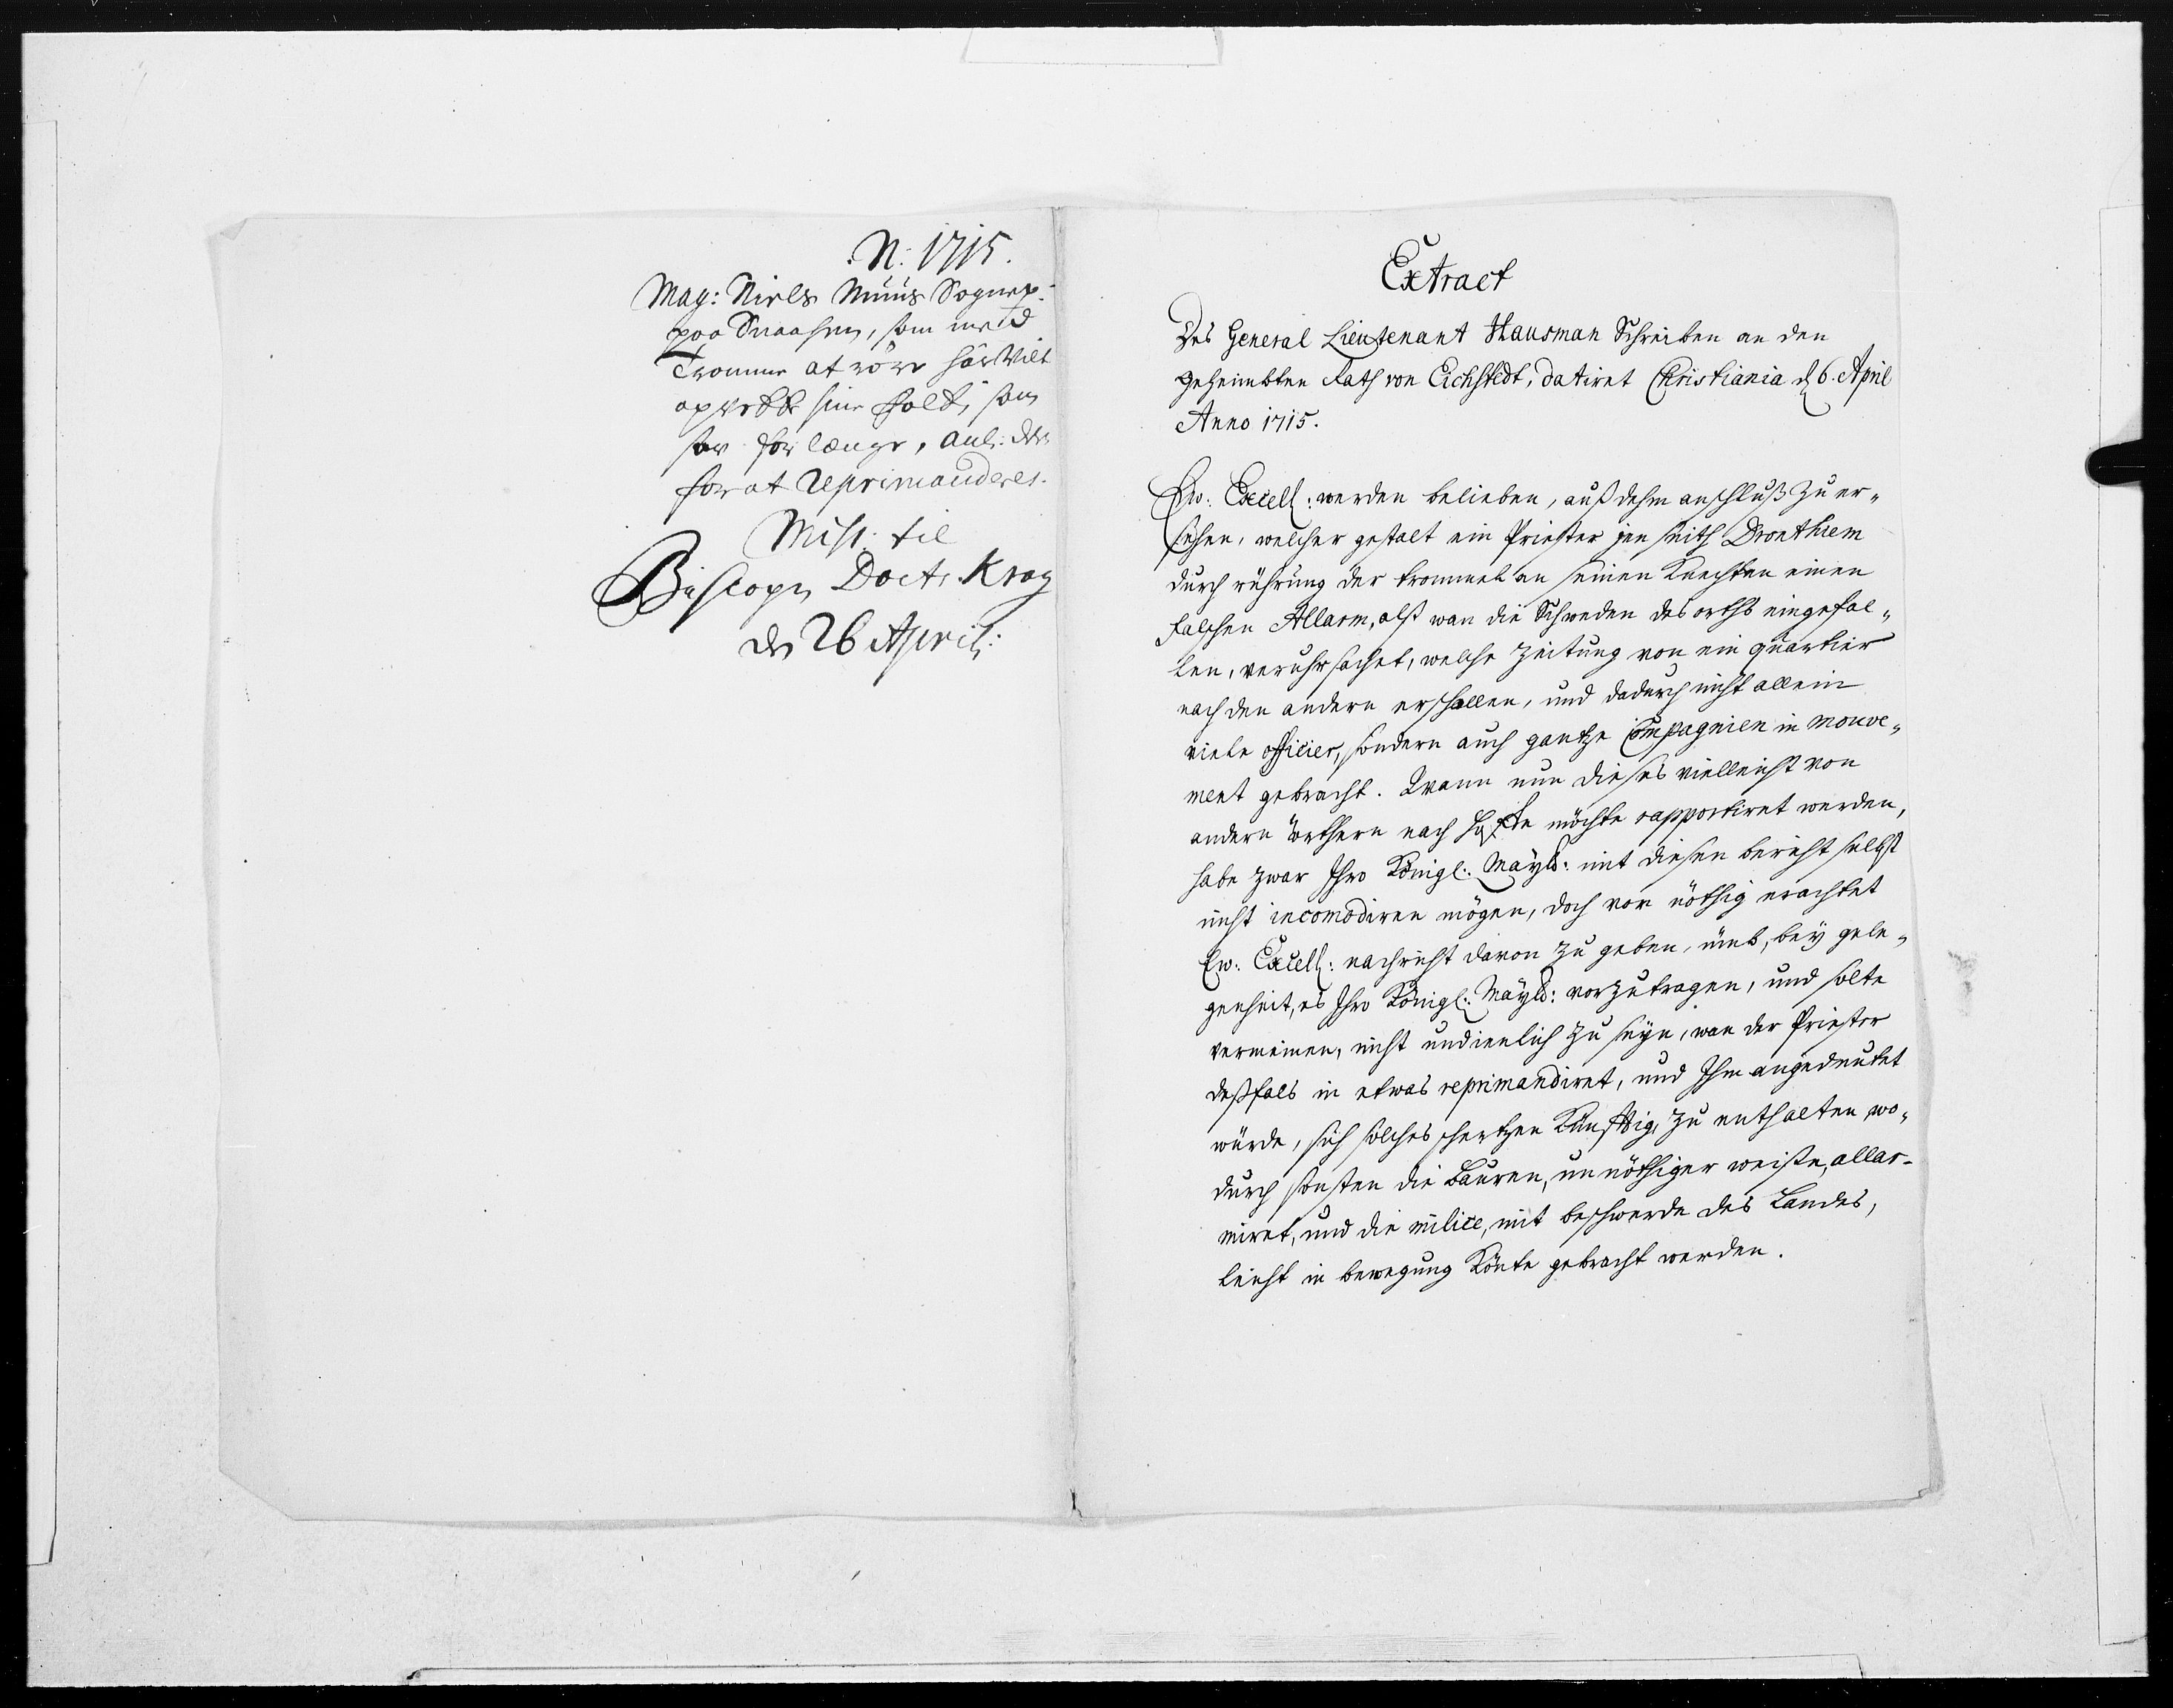 N: 1715.
Mag: Niels Muus Sognep:
paa Snaasen, som med
Tromme at röre har vilt
opvekke sine folk, som
sov for længe, anl: der
for at reprimanderes.
Miss: til
Biscopen Doct: Krog
den 26 April:
Extract
Des General Lieutenant Hausman Schreiben an den
geheimbten Rath von Eichstedt, datiret Christiania d. 6. April
Anno 1715.
Ew: Excell: werden belieben, auß dehm anschluß zu er-
sehen, welcher gestalt ein Priester jen seith Dronthiem
durch rührung der trommel an seinen Knechten einen
falschen Allarm, alß wan die Schweden des orths eingefal-
len, veruhrsachet, welche zeitung von ein quartier
nach den andern erschallen, und dadurch nicht allein
viele officier, sondern auch gantze Compagnien in mouve-
ment gebracht. Wann nun dieses vielleicht von
andern örthern nach Hoffe möchte rapportiret werden,
habe zwar Ihro Königl: Mayts: mit diesen bericht selbst
nicht incomodiren mögen, doch vor nöthig erachtet
Ew: Excell: nachricht davon zu geben, umb, bey gele-
genheit, es Ihro Königl: Mayts: vorzutragen, und solte
vermeinen, nicht undienlich zu seyn, wan der Priester
deßfals in etwas reprimandiret, und Ihm angedeutet
würde, sich solches schertzen Künfftig, zu enthalten wo-
durch sonsten die Bauren, unnöthiger weiße, allar-
miret, und die milice, mit beschwerde des Landes,
leicht in bewegung Könte gebracht werden.